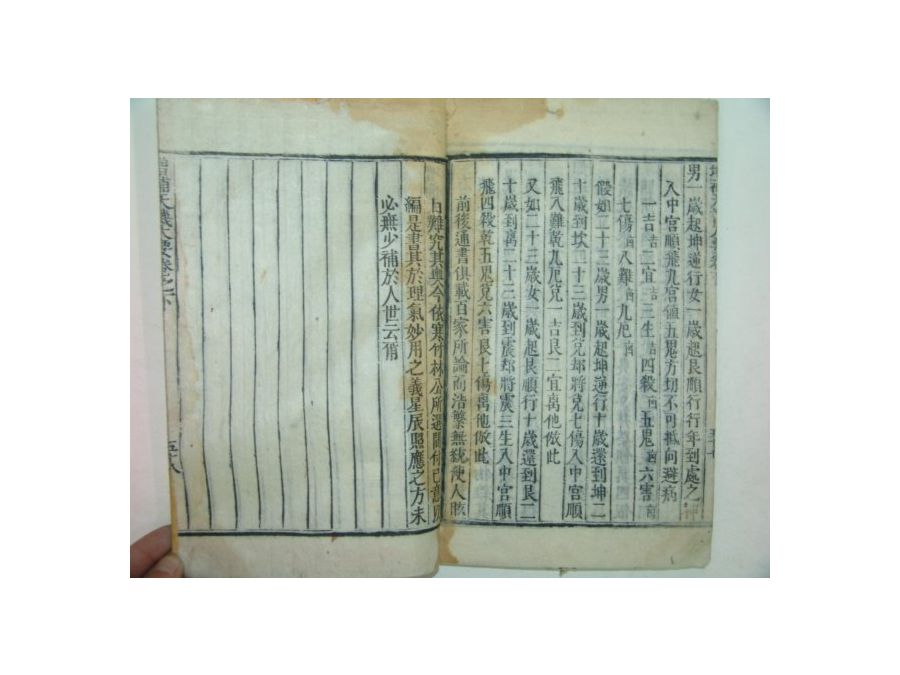 男一歲起坤逆行女一歲起艮順行行年到處之
入中宮順飛九宮值五鬼方切不可抵向避病
一吉吉二宜吉三生吉四殺凶五鬼凶六害凶
七傷凶八難凶九厄凶
假如二十三歲男一歲起坤逆行十歲還到坤二
十歲到坎二十三歲到兌却將兌七傷入中宮順
飛八難乾九厄兌一吉艮二宜离他倣此
又如二十三歲女一歲起艮順行十歲還到艮二
十歲到离二十三歲到震却將震三生入中宮順
飛四殺乾五鬼兌六害艮七傷离他倣此
前後通書俱載百家所論而浩繁無統使人眩
目難究其奧今依寒竹林公所選間付已意
編是書其於理氣妙用之義星辰照應之方未
必無少補於人世云爾
增補天機大要卷之下
五十八